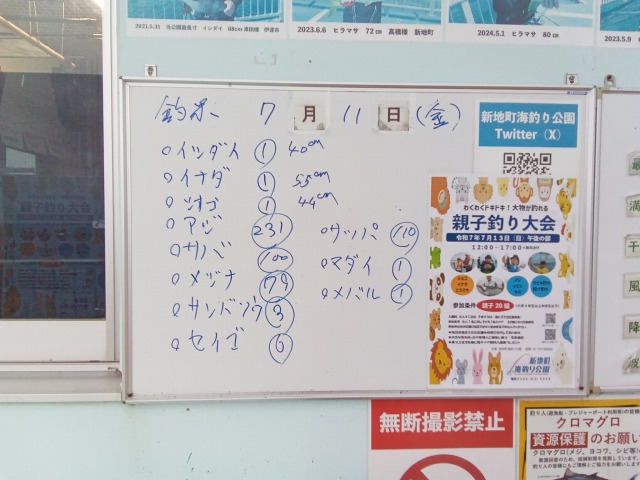 2021.5.31 北公園最長寸 イシダイ 68cm 津田様 伊達市
2023.6.6 ヒラマサ 72cm 髙橋様 新地町
2024.5.1 ヒラマサ 80cm
2023.5.9
釣果、 7 月 11 日 (金)
○イシダイ 1 40cm
○イナダ 1 55cm
1 44cm
○アジ 231
○サバ 100
○メジナ 179
○サンバソウ 3
○セイゴ 6
○サッパ 110
○マダイ 1
○メバル 1
新地町海釣り公園
Twitter (X)
わくわくドキドキ!大物が釣れる
親子釣り大会
令和7年7月13日(日)午後の部
12:00~17:00
参加条件 親子20組
新地町
海釣り公園
無断撮影禁止
釣り人(遊漁船・プレジャーボート利用等)の皆様
クロマグロ
資源保護のお願い
クロマグロ(メジ、ヨコワ、シビ等)の
満
干
風
降
波